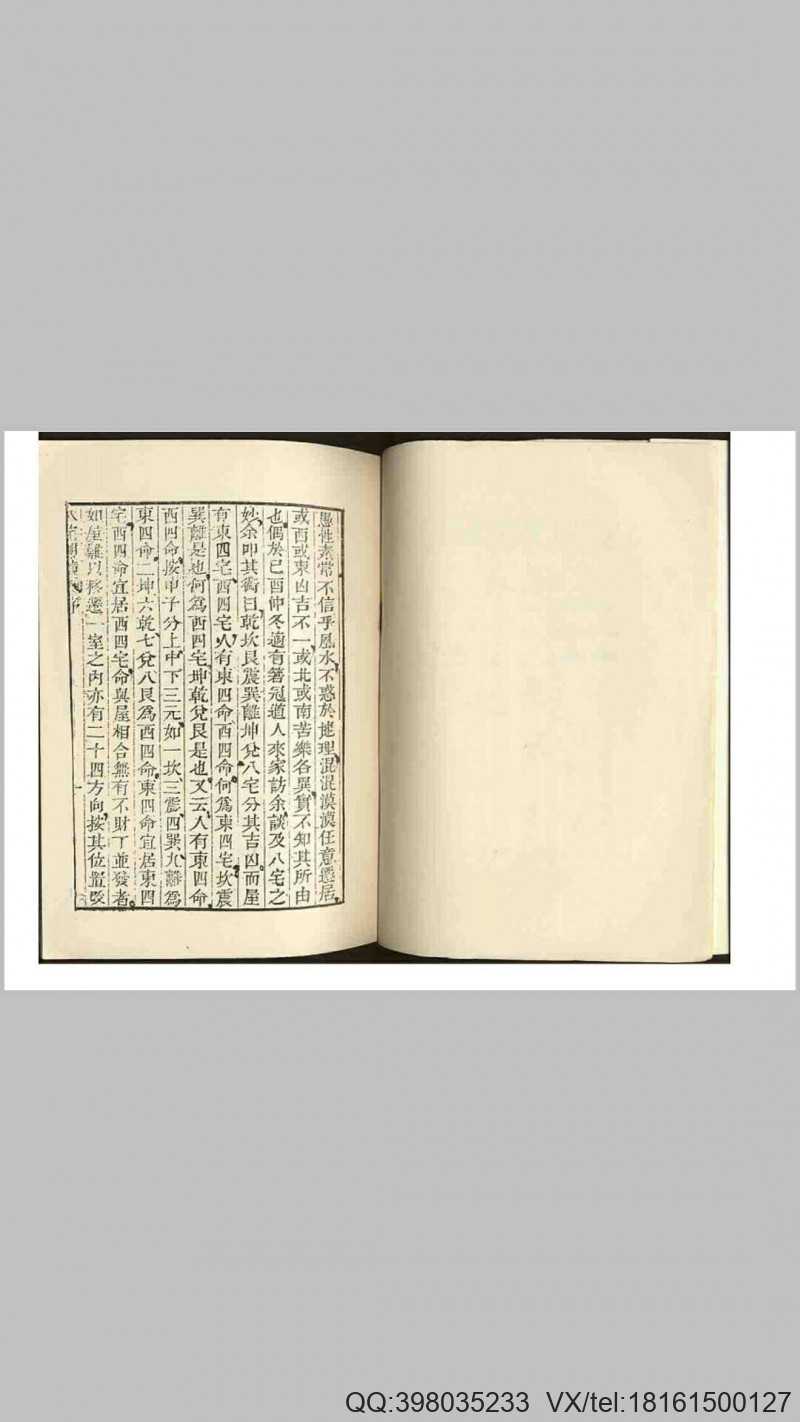 愚性素常不信乎風水不惑於地理混混漠漠任意遷居
或西或東凶吉不一或北或南苦樂各異實不知其所由
也偶於己酉仲冬適有箬冠道人來家訪余談及八宅之
妙余叩其術曰乾坎艮震巽離坤兌八宅分其吉凶而屋
有東四宅西四宅人有東四命西四命何爲東四宅坎震
巽離是也何爲西四宅坤乾兌艮是也又云人有東四命
西四命按甲子分上中下三元如一坎三震四巽九離爲
東四命二坤六乾七兌八艮爲西四命東四命宜居東四
宅西四命宜居西四宅命與屋相合無有不財丁並發者
如屋難以移遷一室之內亦有二十四方向按其位置改
八宅明鏡 序 一
QQ:398035233 VX/tel:18161500127